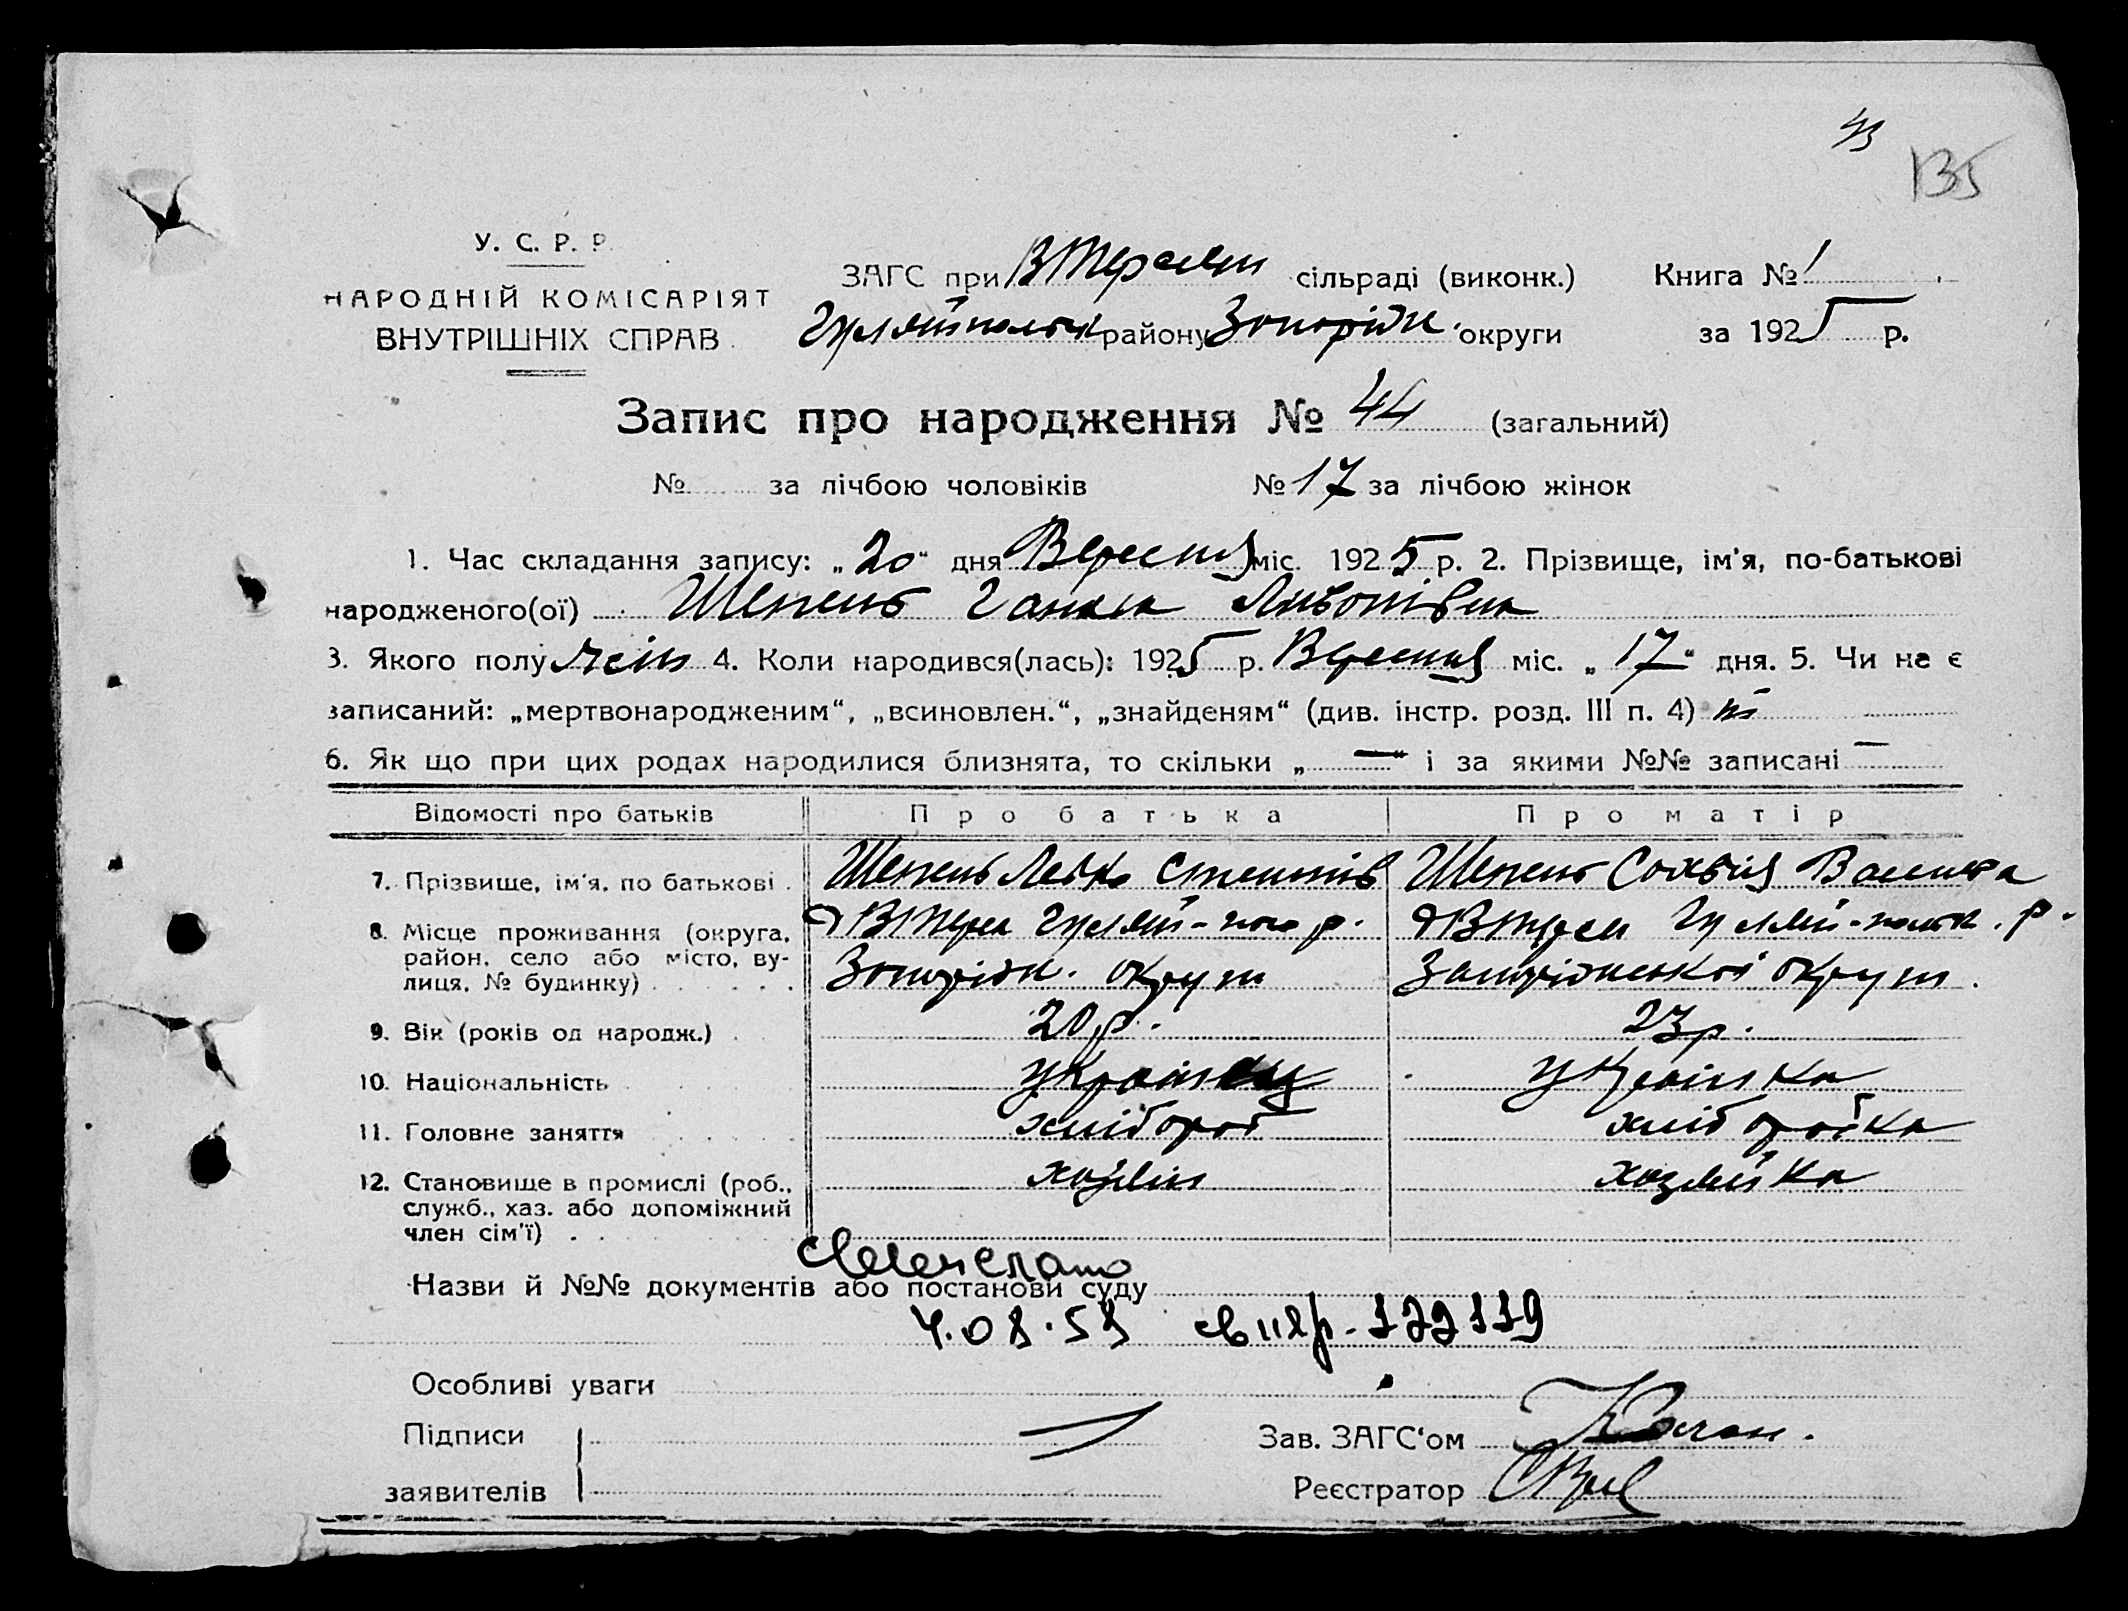 43
135
У. С. Р. Р.
НАРОДНІЙ КОМІСАРІЯТ
ВНУТРІШНІХ СПРАВ
ЗАГС при сільраді (виконк.) Книга № 1
Гуляйпольськ району Запоріжк. округи за 1925 р.
Запис про народження № 44 (загальний)
№ за лічбою чоловіків № 17 за лічбою жінок
1. Час складання запису: „20“ дня Вересня міс. 1925 р. 2. Прізвище, ім'я, по-батькові
народженого(ої) Шепель Ганна
3. Якого полу жін 4. Коли народився(лась): 1925 р. Вересня міс. „17“ дня. 5. Чи не є
записаний: „мертвонародженим“, „всиновлен.“, „знайденям“ (див. інстр. розд. III п. 4) ні
6. Як що при цих родах народилися близнята, то скільки „—“ і за якими №№ записані —
Відомості про батьків Про батька Про матір
7. Прізвище, ім'я, по батькові . Шепель Шепель
8. Місце проживання (округа, район, село або місто, вулиця, № будинку) Гуляй-пол р. Запоріжк. округи Гуляй-польськ. р. Запоріжської округи.
9. Вік (років од народж.) 20 р. 23 р.
10. Національність українец українка
11. Головне заняття хлібороб хліборобка
12. Становище в промислі (роб., служб., хаз. або допоміжний член сім'ї) хазяїн хазяйка
Назви й №№ документів або постанови суду
Особливі уваги
Підписи
заявителів
Зав. ЗАГС'ом
Реєстратор